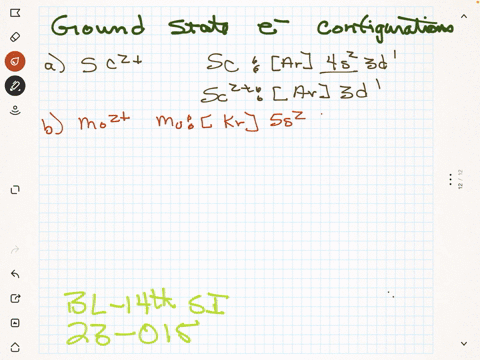 Ground State e⁻ configurations
a) Sc²⁺ Sc : [Ar] 4s² 3d¹
Sc²⁺: [Ar] 3d¹
b) Mo²⁺ Mo: [Kr] 5s²
BL-14th SI
23-015